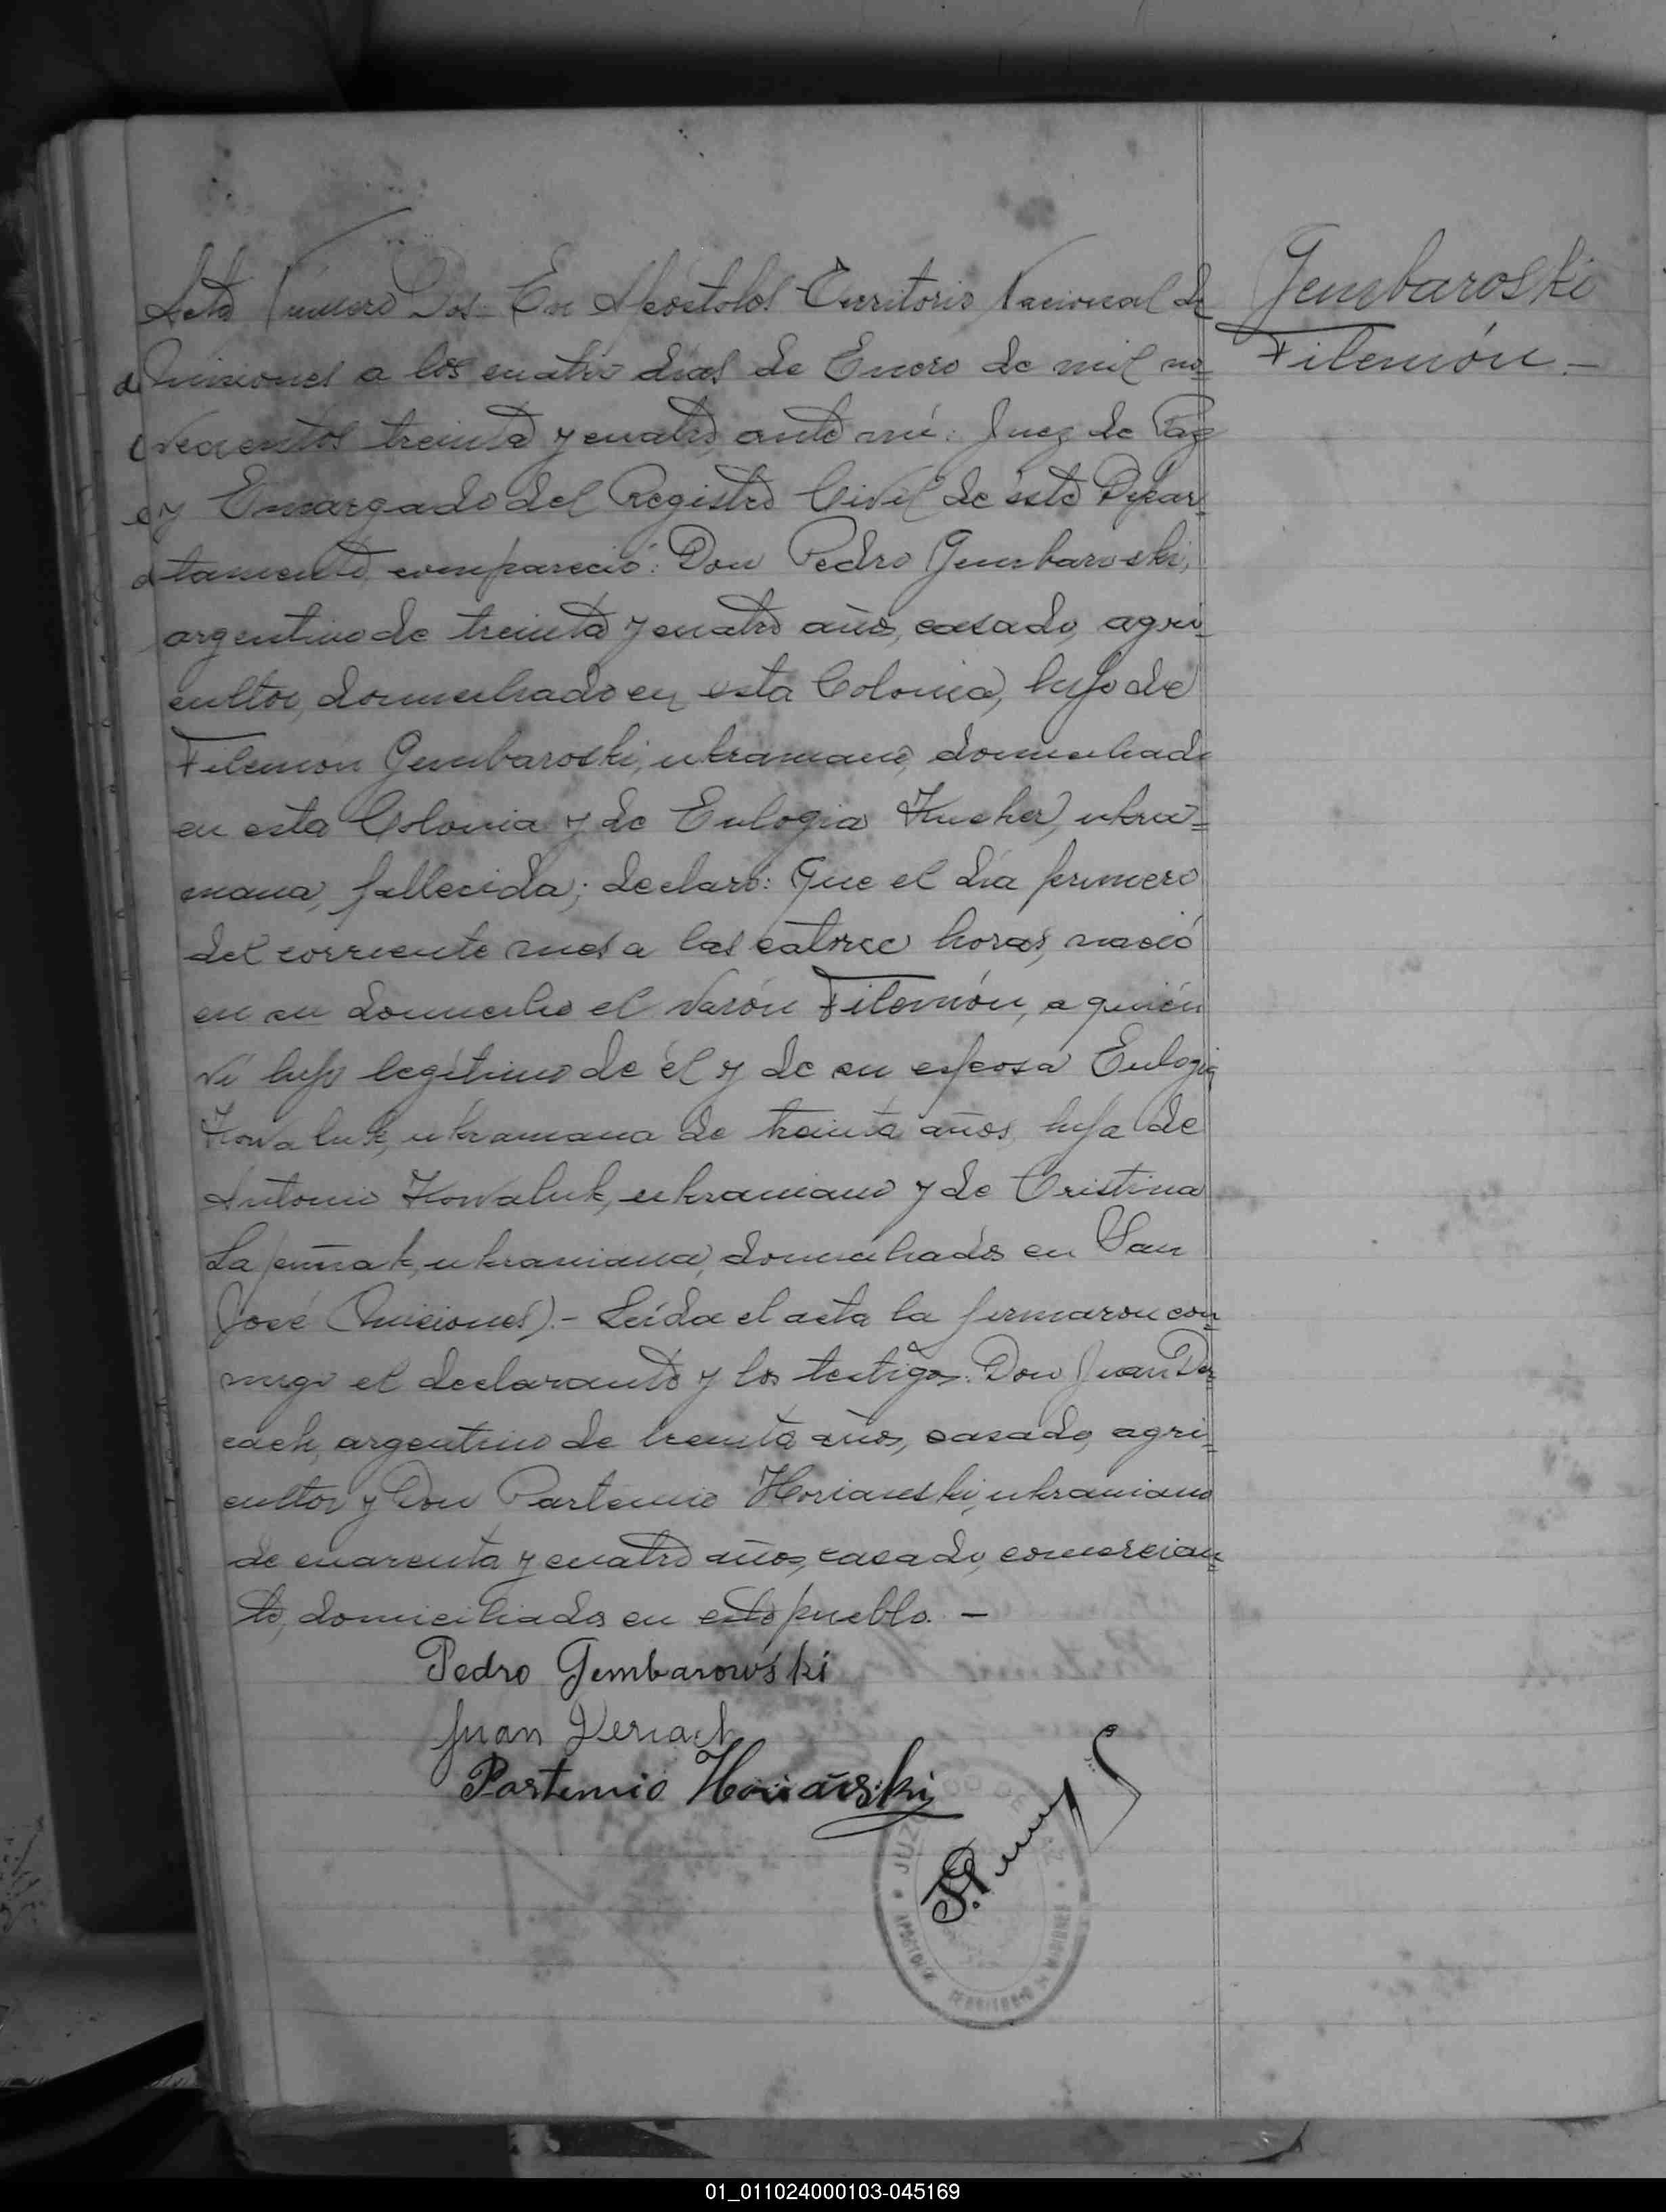 Acta Número Dos. En Apóstoles Territorio Nacional de
Misiones a los cuatro días de Enero de mil no
vecientos treinta y cuatro, ante mí: Juez de Paz
y Encargado del Registro Civil de éste Depar
tamento, compareció: Don Pedro Gembaroski,
argentino de treinta y cuatro años, casado, agri
cultor, domiciliado en esta Colonia, hijo de
Filemon Gembaroski, ukraniano, domiciliado
en esta Colonia y de Eulogia Kucher, ukra=
niana, fallecida; declaró: Que el día primero
del corriente mes a las catorce horas, nació
en su domicilio el varón Filemón, a quién
ví hijo legítimo de él y de su esposa Eulogia
Kowaluk, ukraniana de treinta años, hija de
Antonio Kowaluk, ukraniano y de Cristina
ukraniana, domiciliados en San
José (Misiones).- Leída el acta la firmaron con
migo el declarante y los testigos: Don Juan Der
cach, argentino de treinta años, casado, agri
cultor y Don Partemio Horianski, ukraniano
de cuarenta y cuatro años, casado, comercian
te, domiciliados en este pueblo. -
Pedro Gembarowski
Juan Dercach
Partemio Horiański
JUZGADO DE
APOSTOLES TERRITORIO DE MISIONES
Gembaroski
Filemón.-
01_011024000103-045169